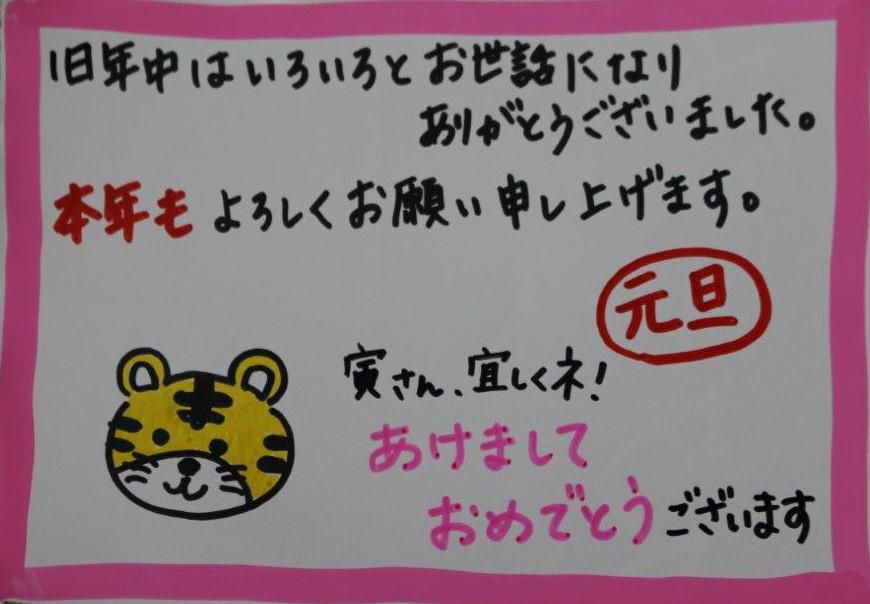 旧年中はいろいろとお世話になり
ありがとうございました。
本年もよろしくお願い申し上げます。
元旦
寅さん、宜しくネ!
あけまして
おめでとうございます